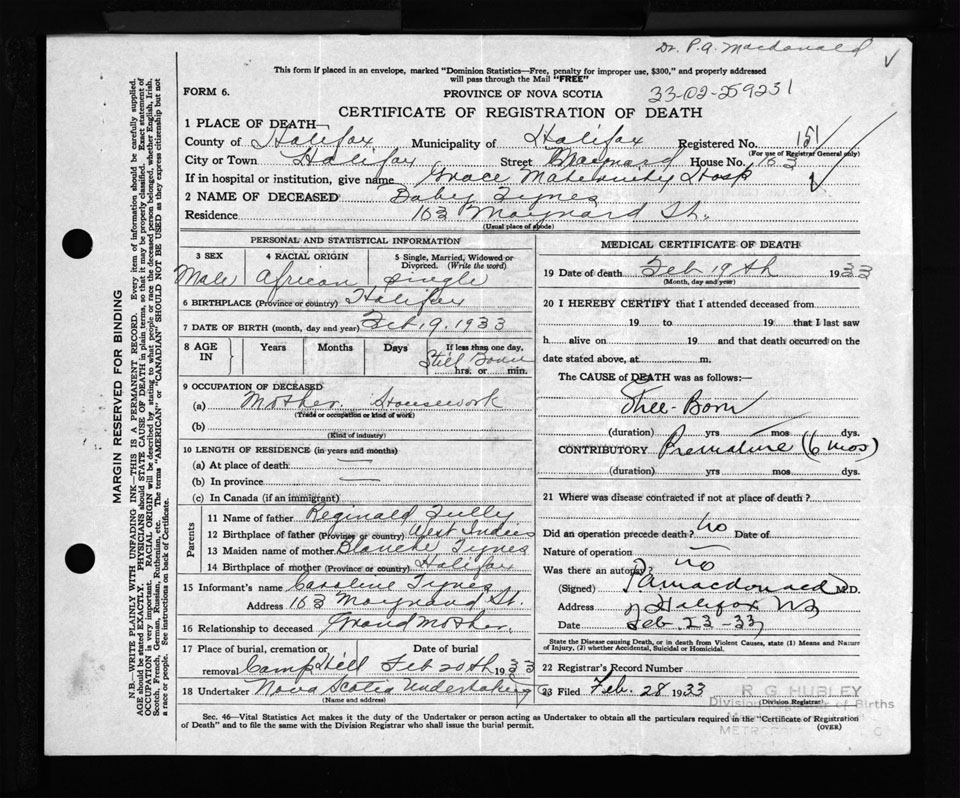 Dr. P. A. Macdonald
This form if placed in an envelope, marked "Dominion Statistics—Free, penalty for improper use, $300," and properly addressed
will pass through the Mail "FREE"
FORM 6.
PROVINCE OF NOVA SCOTIA
33-02-259251
CERTIFICATE OF REGISTRATION OF DEATH
1 PLACE OF DEATH—
County of Halifax Municipality of Halifax Registered No. 151
(For use of Registrar General only)
City or Town Halifax Street Maynard House No. 163
If in hospital or institution, give name Grace Maternity Hosp
2 NAME OF DECEASED Baby Tynes
Residence 163 Maynard St.
(Usual place of abode)
PERSONAL AND STATISTICAL INFORMATION
3 SEX 4 RACIAL ORIGIN 5 Single, Married, Widowed or
Divorced. (Write the word)
Male African Single
6 BIRTHPLACE (Province or country) Halifax
7 DATE OF BIRTH (month, day and year) Feb 19. 1933
8 AGE IN Years Months Days If less than one day,
Still Born
hrs. or min.
9 OCCUPATION OF DECEASED
(a) Mother. Housework
(Trade or occupation or kind of work)
(b)
(Kind of industry)
10 LENGTH OF RESIDENCE (in years and months)
(a) At place of death —
(b) In province —
(c) In Canada (if an immigrant)
Parents
11 Name of father Reginald Tully
12 Birthplace of father (Province or country) West Indies
13 Maiden name of mother Blanche Tynes
14 Birthplace of mother (Province or country) Halifax
15 Informant's name Caroline Tynes
Address 163 Maynard St.
16 Relationship to deceased Grandmother.
17 Place of burial, cremation or Date of burial
removal Camp Hill Feb 20th 1933
18 Undertaker Nova Scotia Undertaking
(Name and address)
MEDICAL CERTIFICATE OF DEATH
19 Date of death Feb 19th 1933
(Month, day and year)
20 I HEREBY CERTIFY that I attended deceased from
19 to 19 that I last saw
h alive on 19 and that death occurred on the
date stated above, at m.
The CAUSE of DEATH was as follows:—
Still-Born
(duration) yrs mos dys.
CONTRIBUTORY Premature (6 mos)
(duration) yrs mos dys.
21 Where was disease contracted if not at place of death?
Did an operation precede death? no Date of
Nature of operation —
Was there an autopsy? no
(Signed) P A Macdonald M.D.
Address Halifax NS
Date Feb-23-33
State the Disease causing Death, or in death from Violent Causes, state (1) Means and Nature
of Injury, (2) whether Accidental, Suicidal or Homicidal.
22 Registrar's Record Number
23 Filed Feb. 28 1933 R G HUBLEY
(Division Registrar)
Division Registrar of Births
Sec. 46—Vital Statistics Act makes it the duty of the Undertaker or person acting as Undertaker to obtain all the particulars required in the "Certificate of Registration
of Death" and to file the same with the Division Registrar who shall issue the burial permit. (OVER)
MARGIN RESERVED FOR BINDING
N.B.—WRITE PLAINLY WITH UNFADING INK—THIS IS A PERMANENT RECORD. Every item of information should be carefully supplied.
AGE should be stated EXACTLY. PHYSICIANS should STATE CAUSE OF DEATH in plain terms, so that it may be properly classified. Exact statement of
OCCUPATION is very important. RACIAL ORIGIN will be described by stating to what people or race the deceased person belonged, whether English, Irish,
Scotch, French, German, Russian, Ruthenian, etc. The terms "AMERICAN" or "CANADIAN" SHOULD NOT BE USED as they express citizenship but not
a race or people. See instructions on back of Certificate.